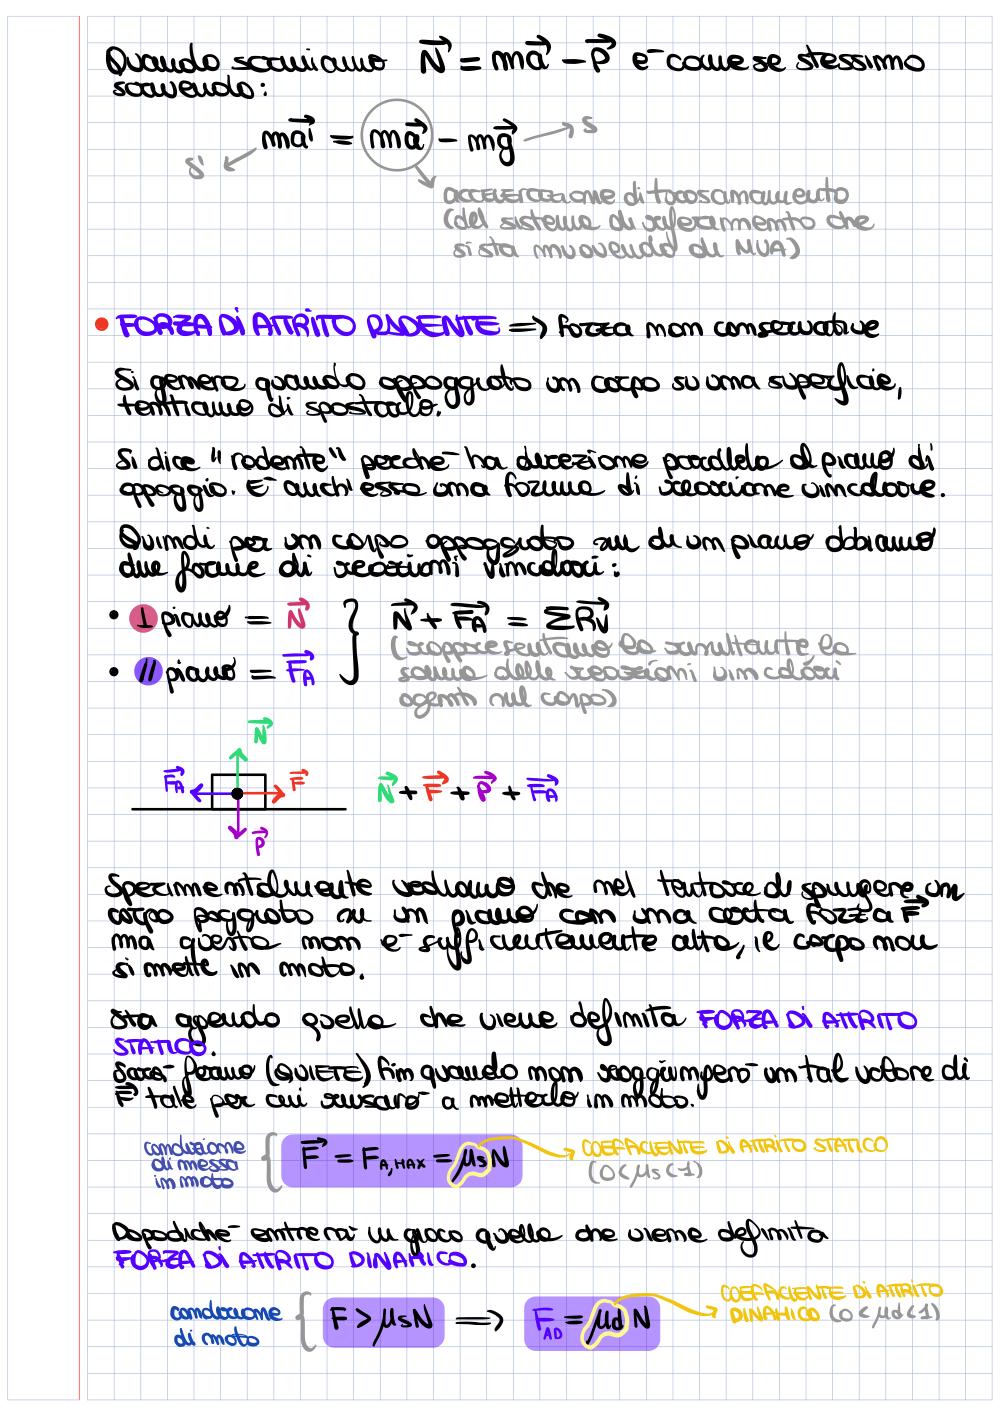 Quando scriviamo N⃗ = ma⃗ - P⃗ è come se stessimo
scrivendo:
ma⃗' = ma⃗ - mg⃗ → S
S'
accelerazione di trascinamento
(del sistema di riferimento che
si sta muovendo di MUA)
• FORZA DI ATTRITO RADENTE => forza non conservativa
Si genera quando appoggiato un corpo su una superficie,
tentiamo di spostarlo.
Si dice "radente" perché ha direzione parallela al piano di
appoggio. È anch'essa una forma di reazione vincolare.
Quindi per un corpo appoggiato su di un piano abbiamo
due forme di reazioni vincolari:
• ⊥ piano = N⃗ } N⃗ + F⃗A = ΣR⃗v
(rappresentano la risultante, la
• // piano = F⃗A
somma delle reazioni vincolari
agenti sul corpo)
N⃗
F⃗A F⃗ N⃗ + F⃗ + P⃗ + F⃗A
P⃗
Sperimentalmente vediamo che nel tentare di spingere un
corpo poggiato su un piano con una certa forza F⃗
ma questa non è sufficientemente alta, il corpo non
si mette in moto.
Sta agendo quella che viene definita FORZA DI ATTRITO
STATICO.
Sarà fermo (QUIETE) fin quando non raggiungerò un tal valore di
F⃗ tale per cui riuscirò a metterlo in moto.
condizione
di messa
in moto
{ F⃗ = FA,MAX = μsN → COEFFICIENTE DI ATTRITO STATICO
(0<μs<1)
Dopodiché entrerà in gioco quella che viene definita
FORZA DI ATTRITO DINAMICO.
condizione
di moto
{ F > μsN => FAD = μd N
COEFFICIENTE DI ATTRITO
DINAMICO (0<μd<1)